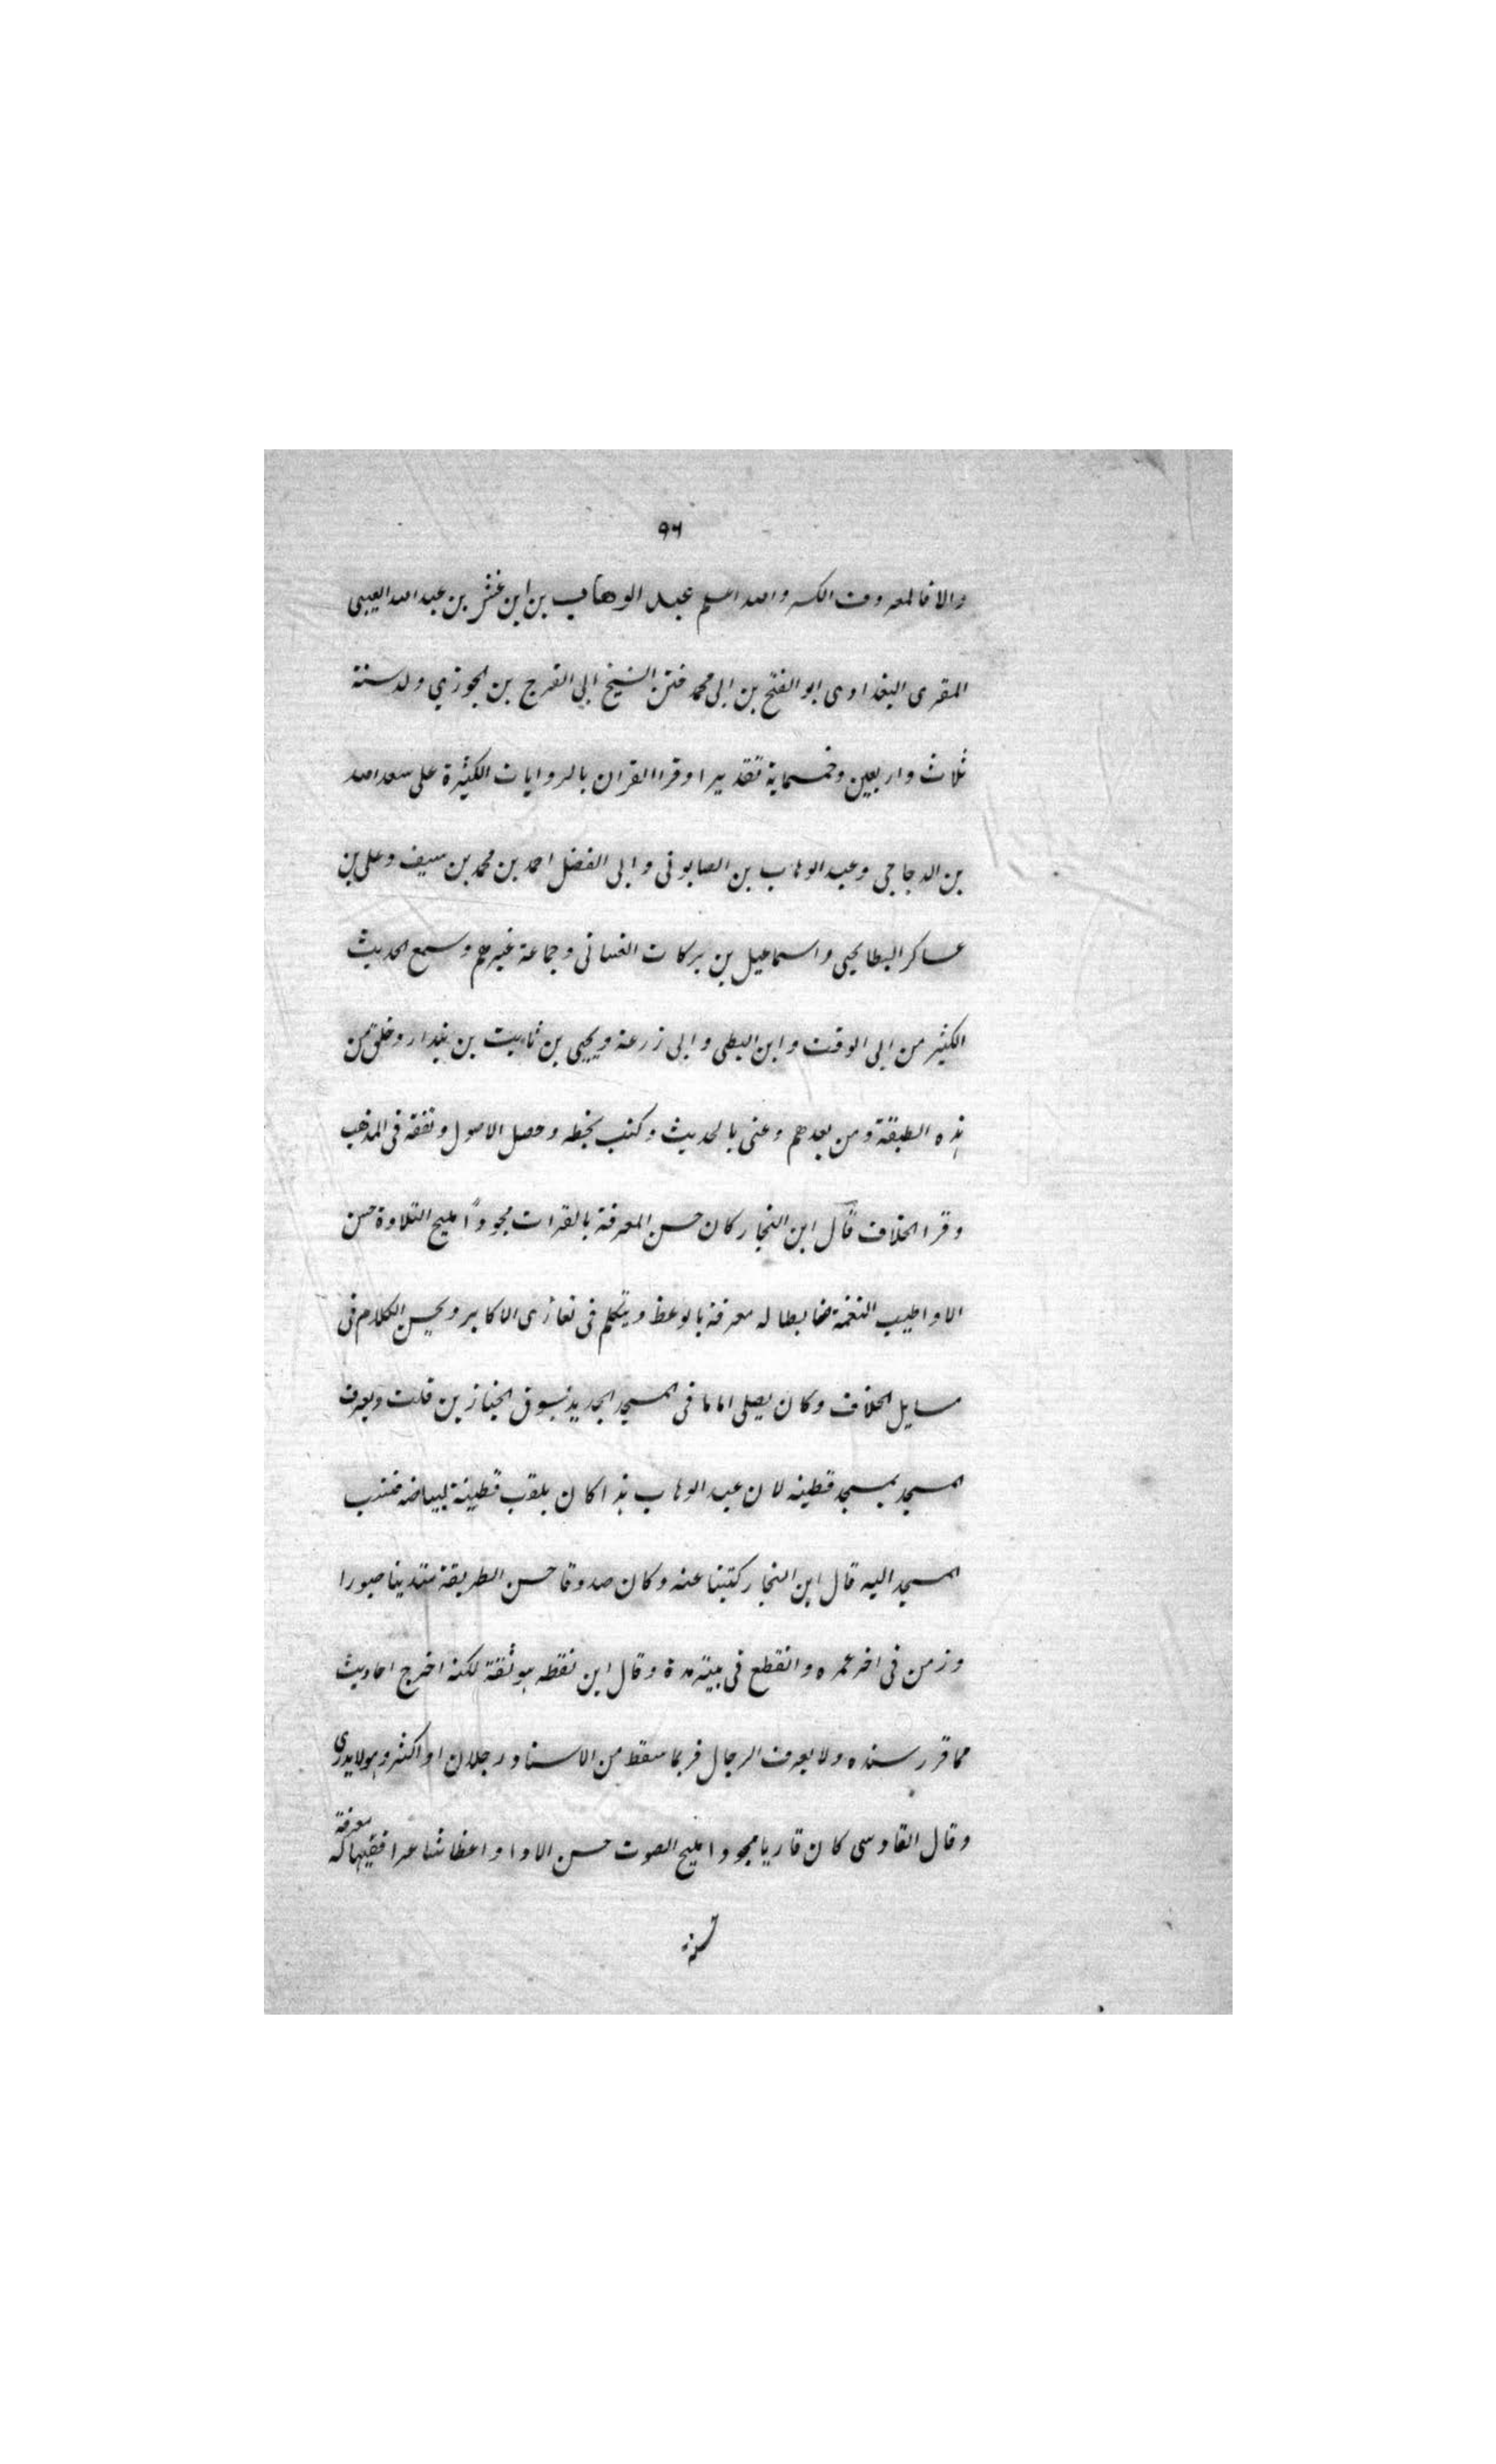 ٩٦
والا فالمعروف الكسر والله اعلم عبد الوهاب بن بن عبد الله العيبى
المقرى البغدادى ابو الفتح بن ابى محمد ختن الشيخ ابى الفرج بن الجوزي ولد سنة
ثلاث واربعين وخمسماية تقديرا وقرا القران بالروايات الكثيرة على سعد الله
بن الدجاجى وعبد الوهاب بن الصابونى وابى الفضل احمد بن محمد بن سيف وعلى بن
عساكر البطايحى واسماعيل بن بركات الغسانى وجماعة غيرهم وسمع الحديث
الكثير من ابى الوقت وابن البطى وابى زرعة ويحيى بن ثابت بن بندار وخلق من
هذه الطبقة ومن بعدهم وعنى بالحديث وكتب بخطه وحصل الاصول وتفقه فى المذهب
وقرا الخلاف قال ابن النجار كان حسن المعرفة بالقرات مجوداً مليح التلاوة حسن
الادا طيب النغمة ضابطا له معرفة بالوعظ ويتكلم فى تعازى الاكابر ويحسن الكلام فى
مسايل الخلاف وكان يصلى اماما فى المسجد الجديد بسوق الخبازين قلت ويعرف
المسجد بمسجد قطينه لان عبد الوهاب هذا كان يلقب قطينة لبياضه فنسب
المسجد اليه قال ابن النجار كتبنا عنه وكان صدوقا حسن الطريقة متدينا صبورا
وزمن فى اخر عمره وانقطع فى بيته مدة وقال ابن نقطه هو ثقة لكنه اخرج احاديث
مما قرر سنده ولا يعرف الرجال فربما سقط من الاسناد رجلان او اكثر وهو لا يدري
وقال القادسى كان قاريا مجودا مليح الصوت حسن الادا واعظا شاعرا فقيها له معرفة